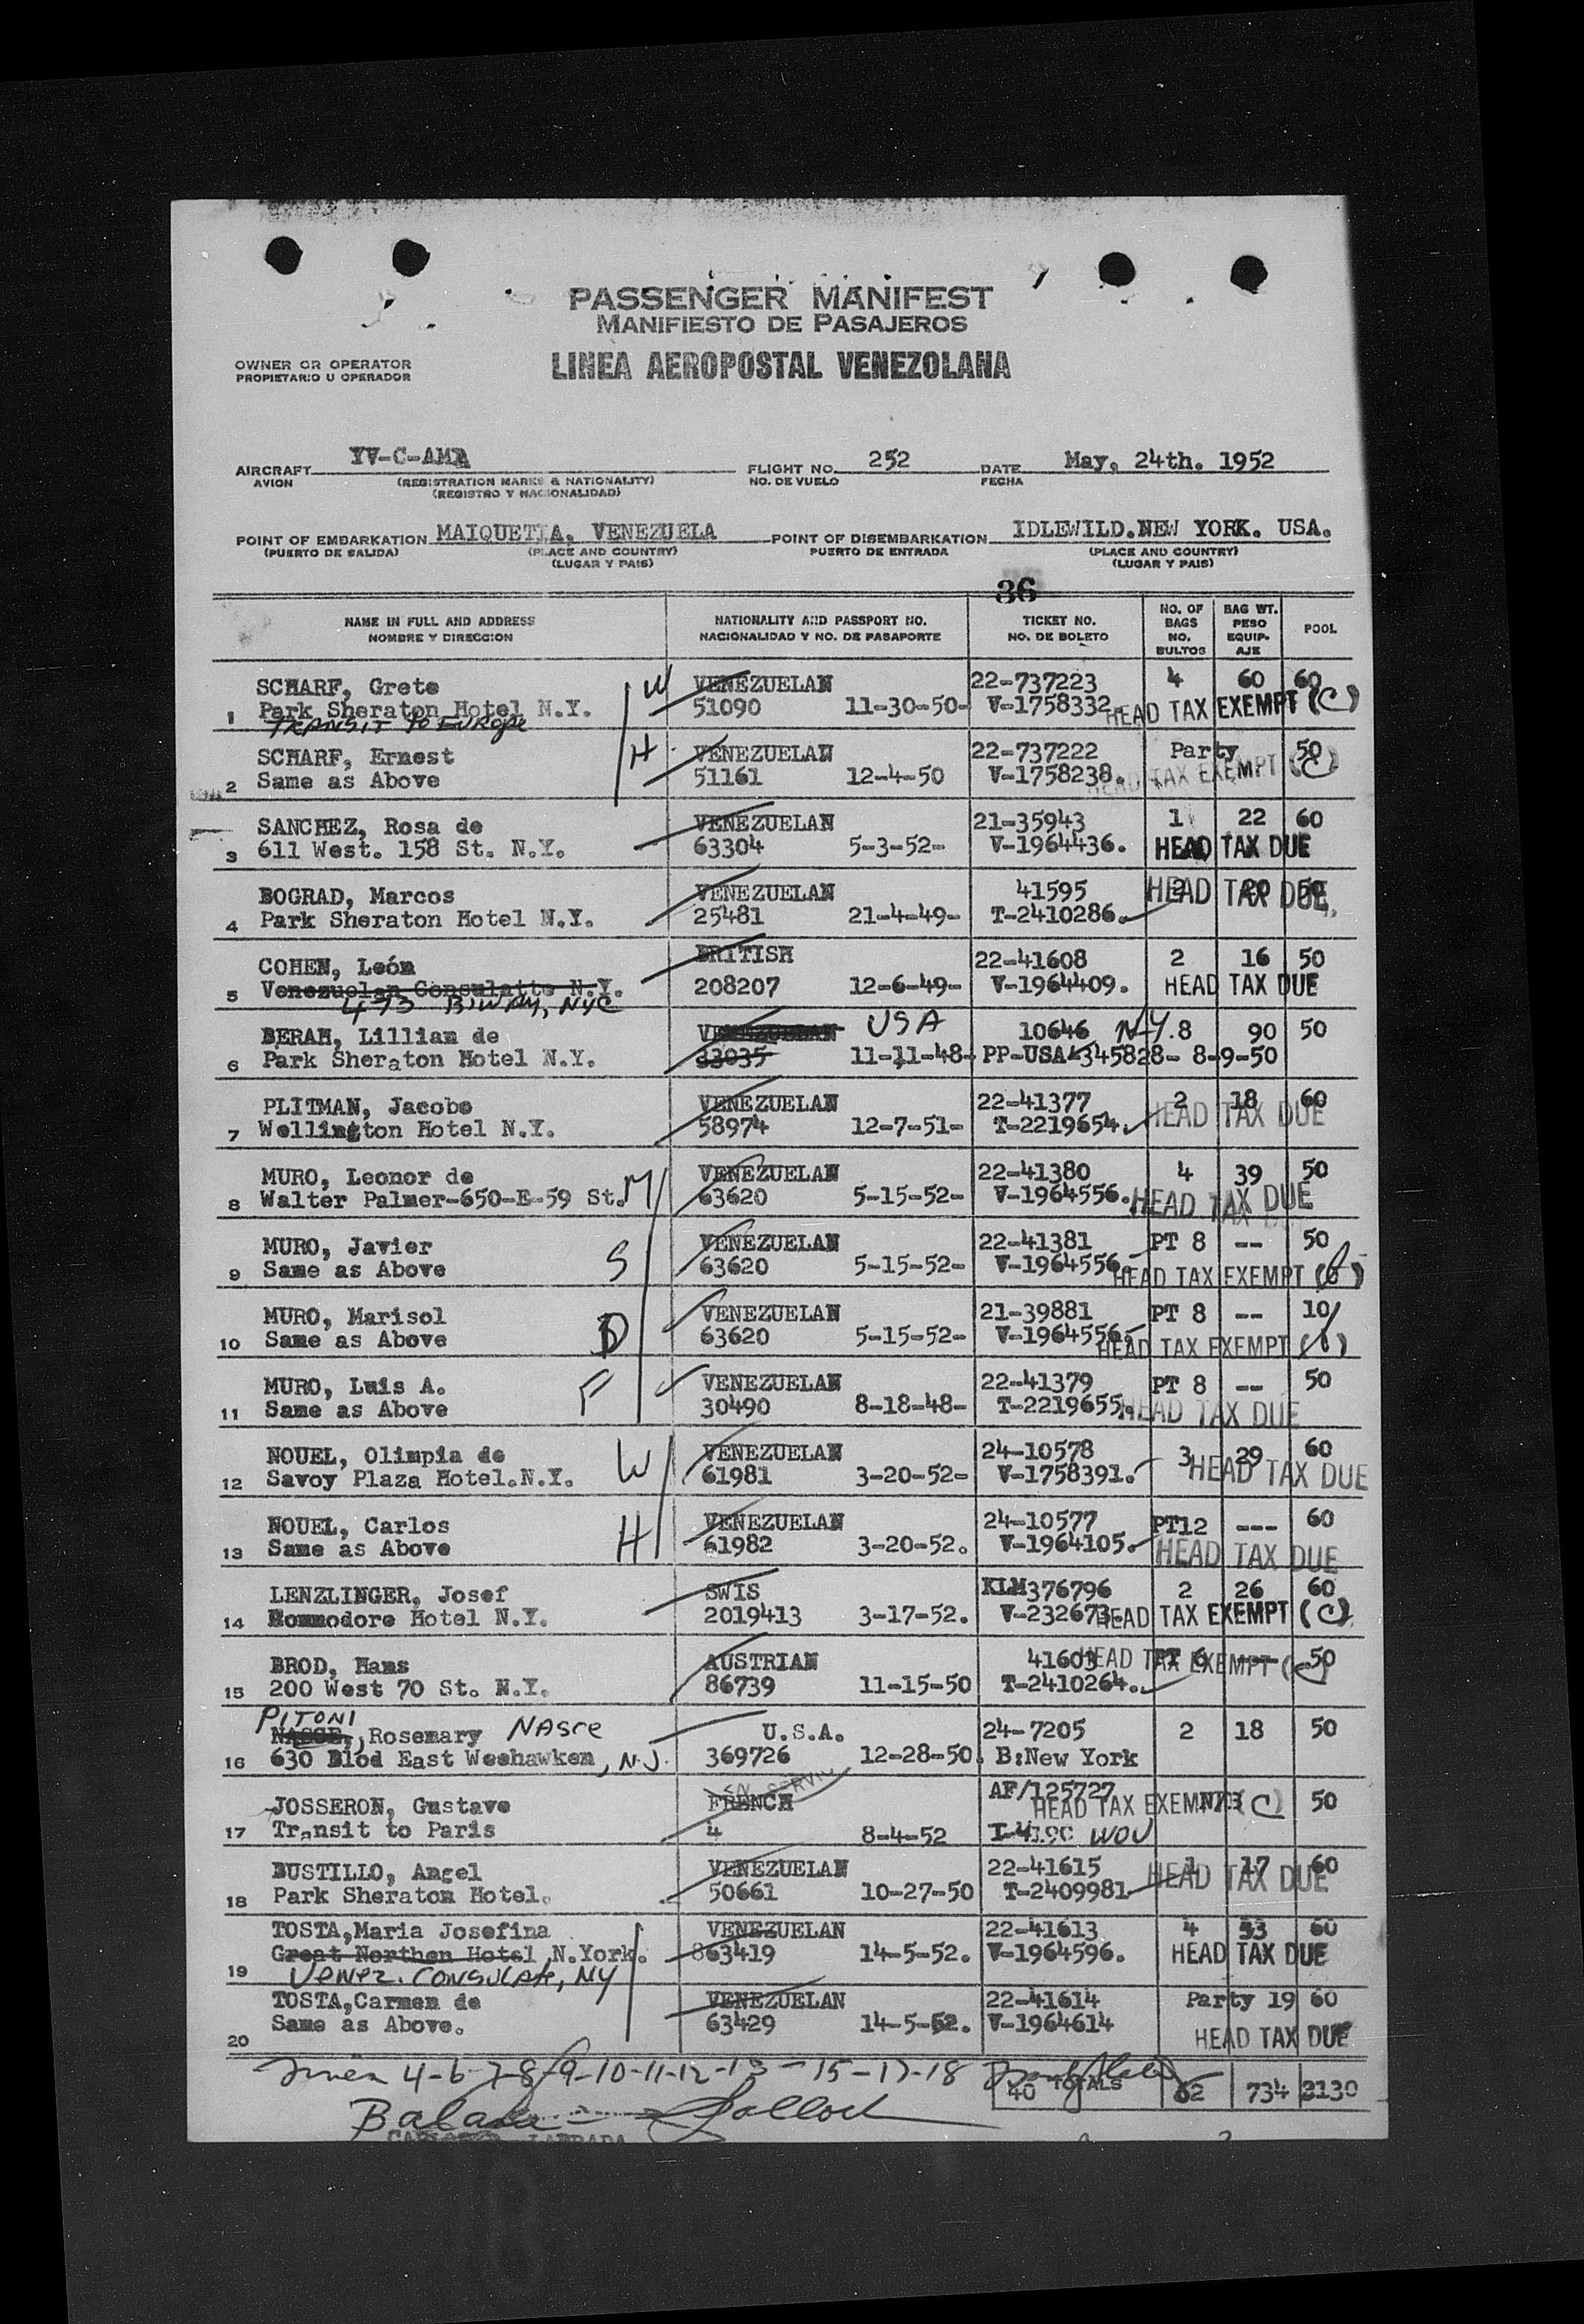 PASSENGER MANIFEST
MANIFIESTO DE PASAJEROS
OWNER OR OPERATOR
PROPIETARIO U OPERADOR
LINEA AEROPOSTAL VENEZOLANA
AIRCRAFT YV-C-AMA FLIGHT NO. 252 DATE May, 24th. 1952
AVION (REGISTRATION MARKS & NATIONALITY) NO. DE VUELO FECHA
(REGISTRO Y NACIONALIDAD)
POINT OF EMBARKATION MAIQUETIA, VENEZUELA POINT OF DISEMBARKATION IDLEWILD.NEW YORK. USA.
(PUERTO DE SALIDA) (PLACE AND COUNTRY) PUERTO DE ENTRADA (PLACE AND COUNTRY)
(LUGAR Y PAIS) (LUGAR Y PAIS)
36
NAME IN FULL AND ADDRESS NATIONALITY AND PASSPORT NO. TICKET NO. NO. OF BAGS BAG WT. POOL
NOMBRE Y DIRECCION NACIONALIDAD Y NO. DE PASAPORTE NO. DE BOLETO NO. BULTOS PESO EQUIP-AJE
SCHARF, Grete W VENEZUELAN 22-737223 4 60 60
1 Park Sheraton Hotel N.Y. 51090 11-30-50- V-1758332. HEAD TAX EXEMPT (C)
TRANSIT to Europe
SCHARF, Ernest H VENEZUELAN 22-737222 Party 50
2 Same as Above 51161 12-4-50 V-1758238. HEAD TAX EXEMPT (C)
SANCHEZ, Rosa de VENEZUELAN 21-35943 1 22 60
3 611 West. 158 St. N.Y. 63304 5-3-52- V-1964436. HEAD TAX DUE
BOGRAD, Marcos VENEZUELAN 41595 HEAD TAX DUE
4 Park Sheraton Hotel N.Y. 25481 21-4-49- T-2410286.
COHEN, León BRITISH 22-41608 2 16 50
5 Venezuelan Consulatte N.Y. 208207 12-6-49- V-1964409. HEAD TAX DUE
473 B'WAY, NYC
BERAH, Lillian de VENEZUELAN USA 10646 N.Y. 8 90 50
6 Park Sheraton Hotel N.Y. 33035 11-11-48- PP-USA-345828- 8-9-50
PLITMAN, Jacobo VENEZUELAN 22-41377 2 18 60
7 Wellington Hotel N.Y. 58974 12-7-51- T-2219654. HEAD TAX DUE
MURO, Leonor de M VENEZUELAN 22-41380 4 39 50
8 Walter Palmer-650-E-59 St. 63620 5-15-52- V-1964556. HEAD TAX DUE
MURO, Javier S VENEZUELAN 22-41381 PT 8 -- 50
9 Same as Above 63620 5-15-52- V-1964556. HEAD TAX EXEMPT
MURO, Marisol D VENEZUELAN 21-39881 PT 8 -- 10
10 Same as Above 63620 5-15-52- V-1964556. HEAD TAX EXEMPT
MURO, Luis A. F VENEZUELAN 22-41379 PT 8 -- 50
11 Same as Above 30490 8-18-48- T-2219655. HEAD TAX DUE
NOUEL, Olimpia de W VENEZUELAN 24-10578 3 29 60
12 Savoy Plaza Hotel.N.Y. 61981 3-20-52- V-1758391. HEAD TAX DUE
NOUEL, Carlos H VENEZUELAN 24-10577 PT12 --- 60
13 Same as Above 61982 3-20-52. V-1964105. HEAD TAX DUE
LENZLINGER, Josef SWIS KLM376796 2 26 60
14 Commodore Hotel N.Y. 2019413 3-17-52. V-232673- HEAD TAX EXEMPT (C)
BROD, Hans AUSTRIAN 41603 HEAD TAX EXEMPT (C) 50
15 200 West 70 St. N.Y. 86739 11-15-50 T-2410264.
PITONI
NASCE, Rosemary NAsce U.S.A. 24-7205 2 18 50
16 630 Blod East Weehawken, N.J. 369726 12-28-50. B:New York
JOSSERON, Gustave FRENCH AF/125727 HEAD TAX EXEMPT (C) 50
17 Transit to Paris 4 8-4-52 WOV
BUSTILLO, Angel VENEZUELAN 22-41615 1 17 60
18 Park Sheraton Hotel. 50661 10-27-50 T-2409981 HEAD TAX DUE
TOSTA,Maria Josefina VENEZUELAN 22-41613 4 33 60
19 Great Northen Hotel N.York. 863419 14-5-52. V-1964596. HEAD TAX DUE
Venez. Consulate, NY
TOSTA,Carmen de VENEZUELAN 22-41614 Party 19 60
20 Same as Above. 63429 14-5-52. V-1964614 HEAD TAX DUE
4-6-7-8-9-10-11-12-13-15-17-18
40 TOTALS 62 734 2130